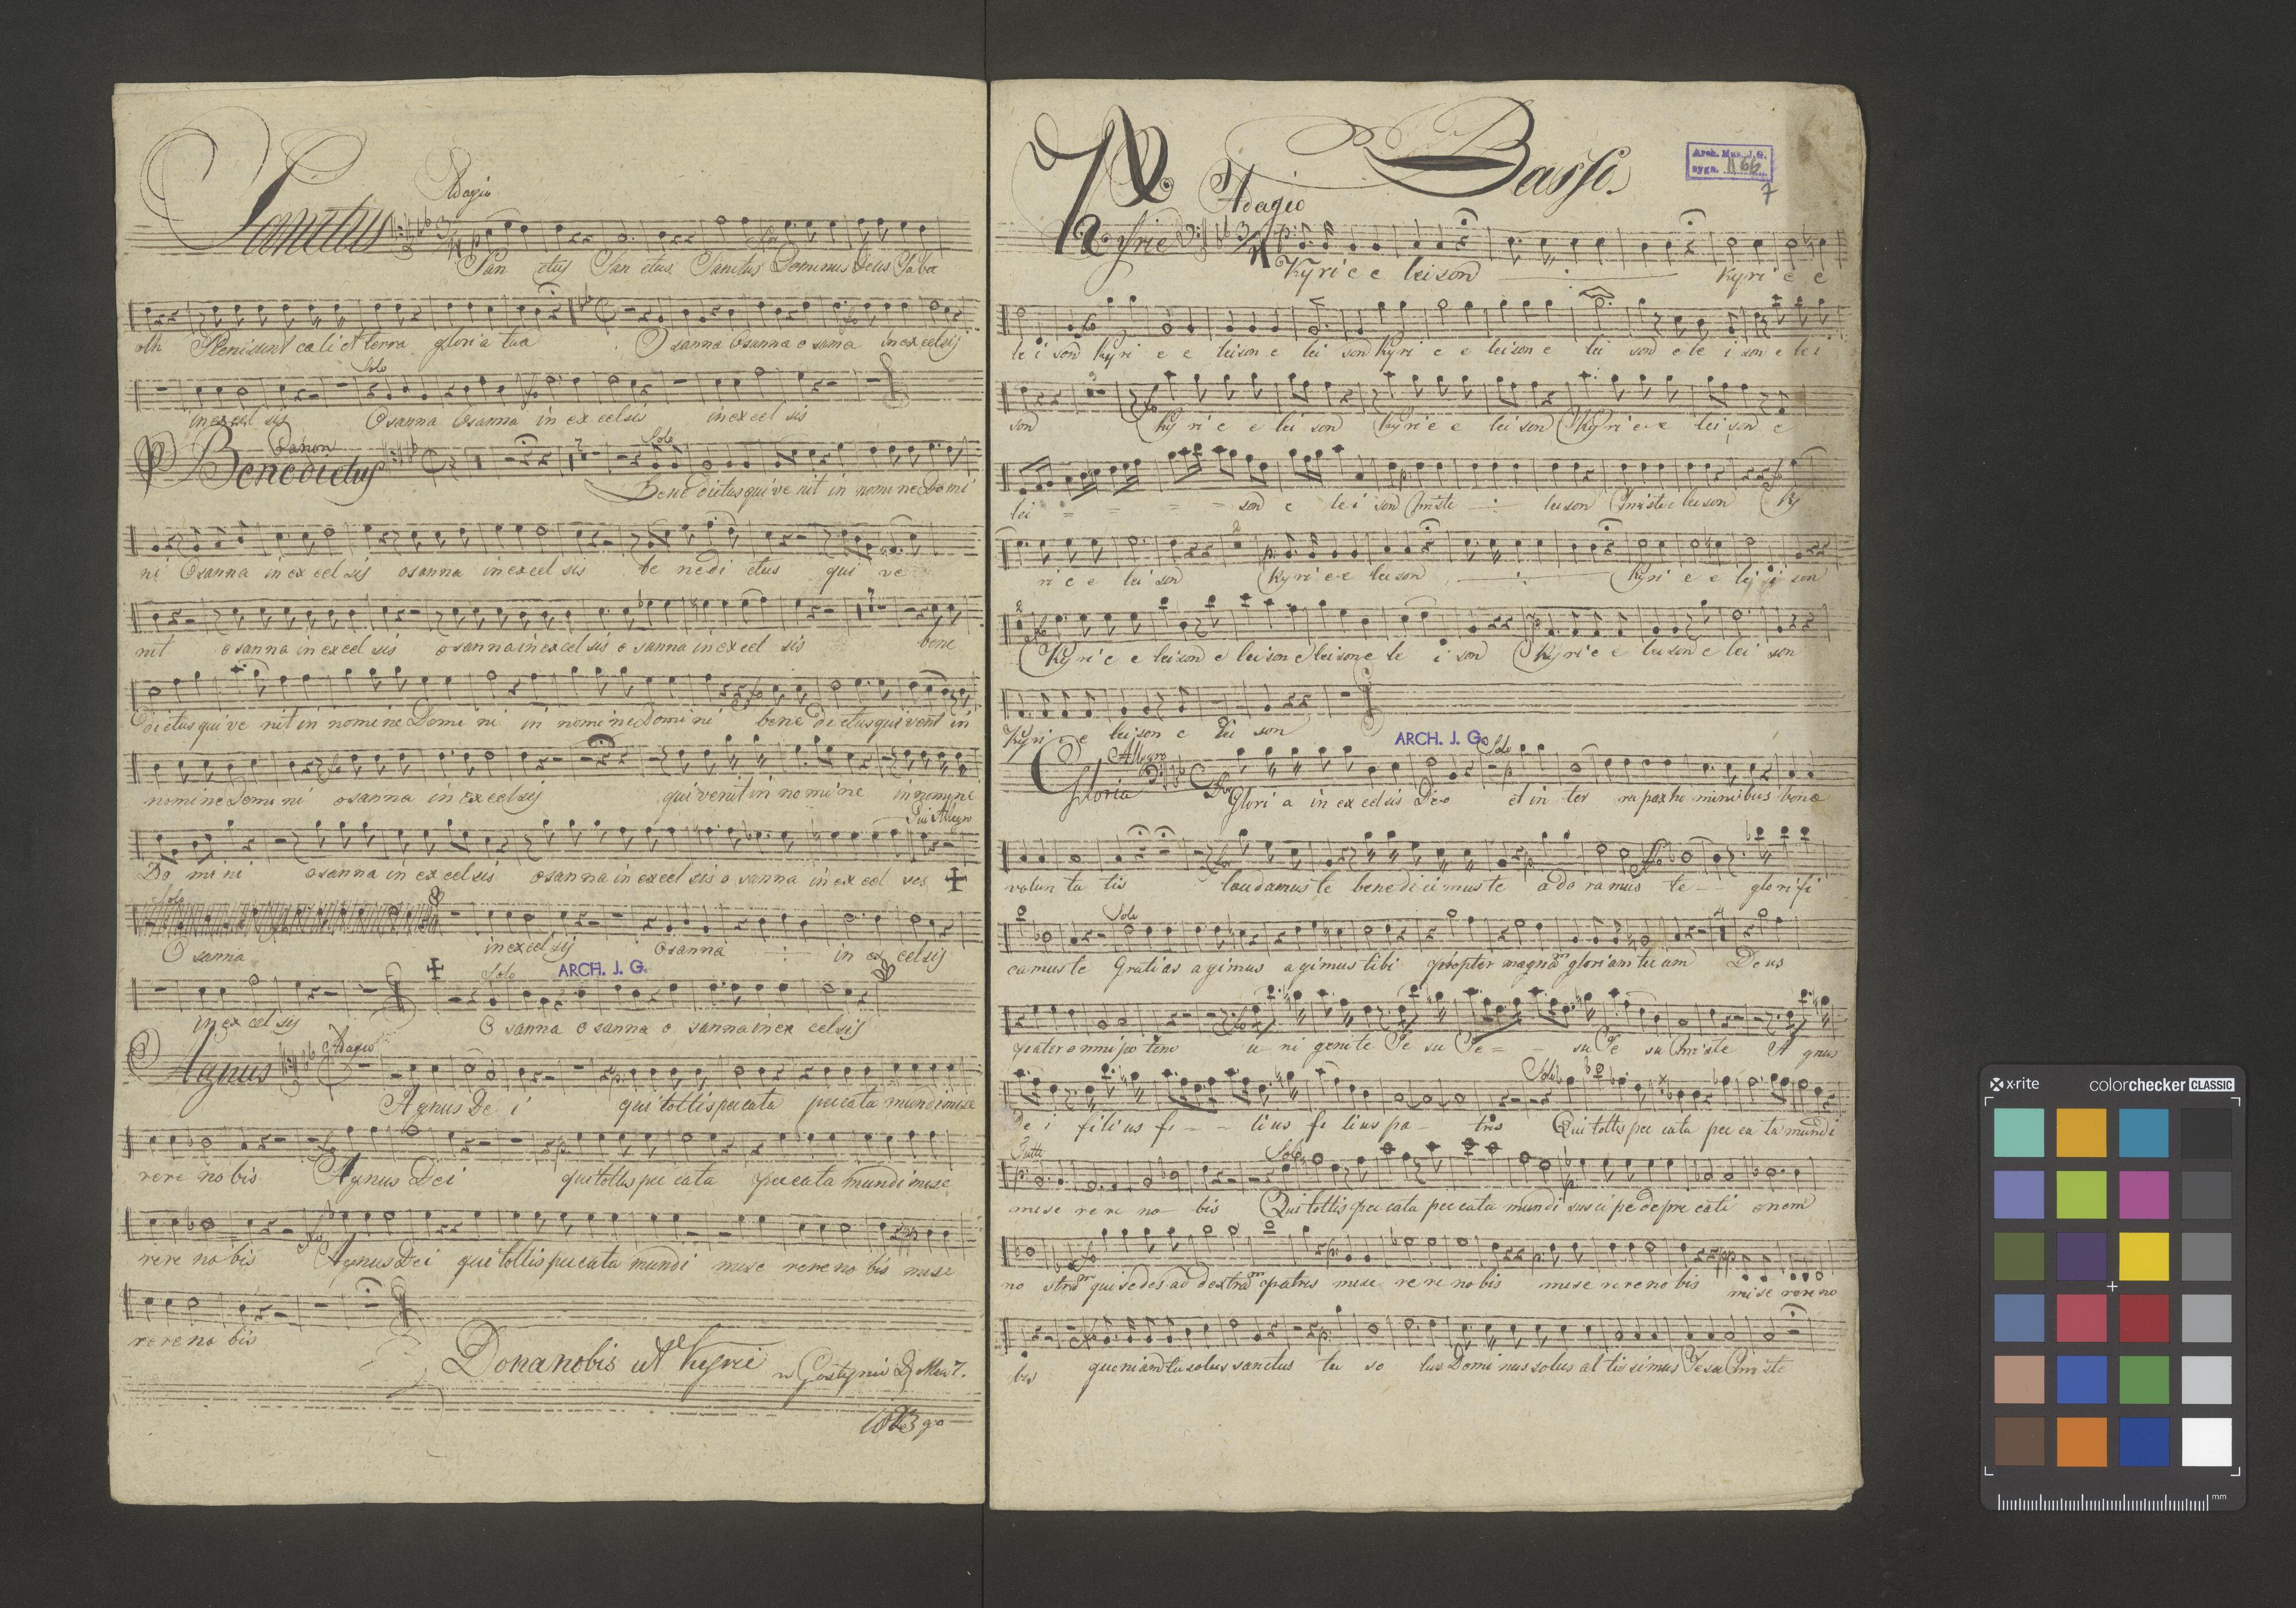 Adagio
Sanctus
San ctus San ctus Sanctus Dominus Deus Saba
oth Pleni sunt cæli et terra gloria tua O sanna Osanna o sanna in excelsis
Solo
in excel sis Osanna Osanna in ex celsis in excel sis
Canon
Solo
Benedictus
Bene dictus qui ve nit in nomine Domi
ni Osanna in ex cel sis osanna in excel sis be ne di ctus qui ve
nit o sanna in excel sis o sanna in excel sis o sanna in excel sis bene
dictus qui ve nit in nomine Domi ni in nomine Domi ni bene dictus qui venit in
nomine Domi ni osanna in Excelsis qui venit in no mi ne in nomine
Piu Allegro
Do mi ni osanna in ex celsis osanna in excel sis o sanna in ex cel ses
Solo
O sanna in excel sis Osanna in ex celsis
Solo ARCH. J. G.
in ex cel sis O sanna o sanna o sanna in ex celsis
Adagio
Agnus
Agnus De i qui tollis peccata peccata mundi mise
rere no bis Agnus Dei qui tollis pec cata peccata mundi mise
rere no bis Agnus Dei qui tollis peccata mundi mise rere no bis mise
re re no bis
Dona nobis ut Kyrie w Gostyniu d Mai 7.
1823 go
Basso
Arch. Mus. J. G.
sygn. A 66
7
Adagio
Kyrie
Kyri e e leison Kyri e e
le i son Kyri e e leison e lei son Kyri e e leison e lei son e le i son e lei
son Ky ri e e lei son Kyri e e lei son Kyri e e lei son e
lei son e lei son Christe leison Christe leison Ky
ri e e lei son Kyri e e leison Kyri e e lei i son
Kyri e e leison e leison e leison e le i son Kyri e e leison e lei son
Kyri e e leison e lei son
Allegro ARCH. J. G. Solo
Gloria
Glori a in ex celsis Deo et in ter ra pax ho minibus bonæ
volun ta tis laudamus te benedicimus te ado ramus te glorifi
Solo
camus te Gratias agimus agimus tibi propter magnam gloriam tuam Deus
pater omnipotens u ni genite Je su Je su Je su Christe A gnus
Solo
De i filius fi li us fi lius pa tris Qui tollis pec cata pec ca ta mundi
Tutti Solo
mise re re no bis Qui tollis pec cata peccata mundi susci pe depre cati onem
no stram qui sedes ad dextram patris mise re re no bis mise rere no bis mise rere no
bis quoniam tu solus sanctus tu so lus Dominus solus al tissimus Jesu Christe
x-rite colorchecker CLASSIC
mm